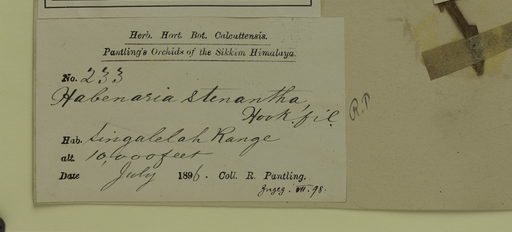 Herb. Hort. Bot. Calcuttensis.
Pantling's Orchids of the Sikkim Himalaya.
No. 233
Habenaria stenantha,
Hook. fil.
Hab. Singalelah Range
alt. 10,000 feet
Date July 1896. Coll. R. Pantling.
VII. 98.
R.P